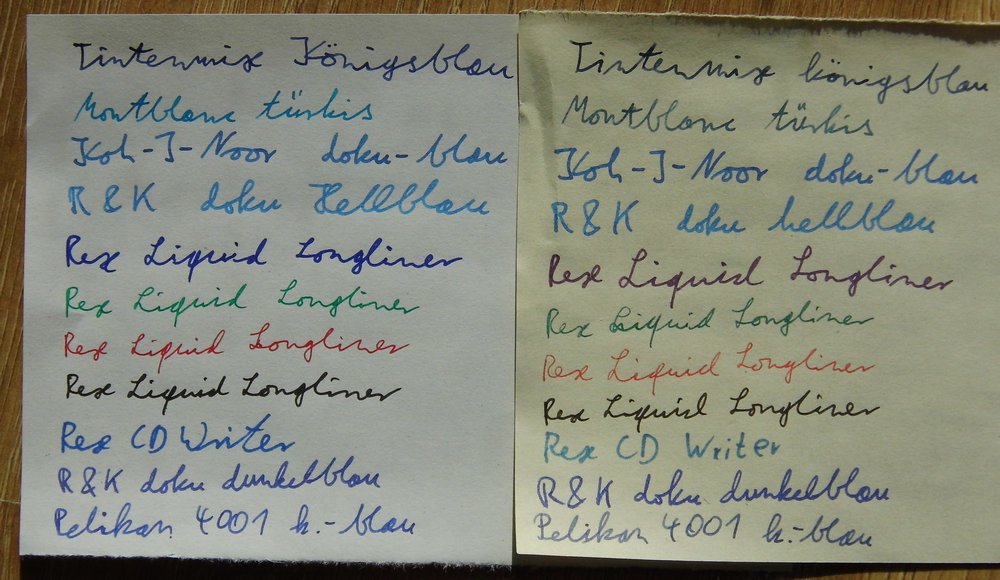 Tintenmix Königsblau
Montblanc türkis
Koh-I-Noor doku-blau
R&K doku Hellblau
Rex Liquid Longliner
Rex Liquid Longliner
Rex Liquid Longliner
Rex Liquid Longliner
Rex CD Writer
R&K doku dunkelblau
Pelikan 4001 k.-blau
Tintenmix königsblau
Montblanc türkis
Koh-I-Noor doku-blau
R&K doku hellblau
Rex Liquid Longliner
Rex Liquid Longliner
Rex Liquid Longliner
Rex Liquid Longliner
Rex CD Writer
R&K doku dunkelblau
Pelikan 4001 k.-blau